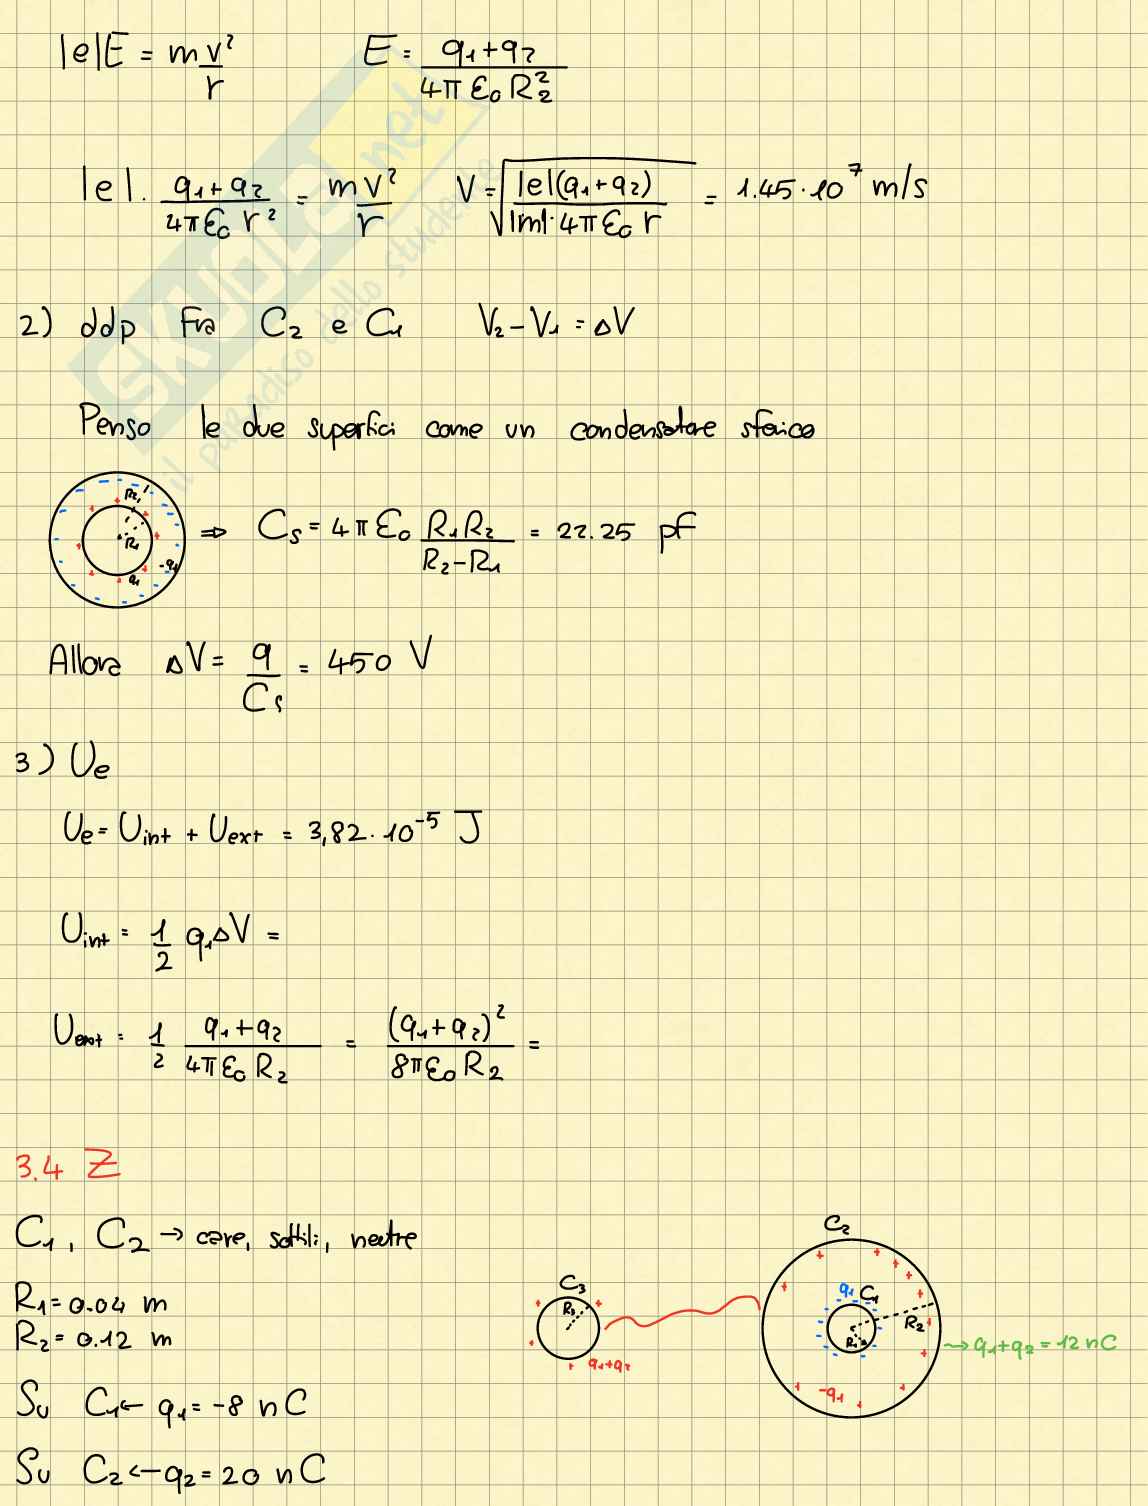 |e|E = m v²/r   E = (q₁+q₂)/(4π ε₀ R₂²)
|e| · (q₁+q₂)/(4π ε₀ r²) = m v²/r   V = √(|e|(q₁+q₂)/(|m|·4π ε₀ r)) = 1.45·10⁷ m/s
2) ddp Fra C₂ e C₁   V₂-V₁ = ΔV
Penso le due superfici come un condensatore sferico
R₂ R₁ q₁ -q₁ ⇒ Cₛ = 4π ε₀ (R₁R₂)/(R₂-R₁) = 22.25 pF
Allora ΔV = q/Cₛ = 450 V
3) Ue
Ue = Uint + Uext = 3,82·10⁻⁵ J
Uint = 1/2 q₁ΔV =
Uext = 1/2 (q₁+q₂)/(4π ε₀ R₂) = (q₁+q₂)²/(8π ε₀ R₂) =
3.4 Z
C₁, C₂ → cave, sottili, neutre
R₁ = 0.04 m
R₂ = 0.12 m
Su C₁ ← q₁ = -8 nC
Su C₂ ← q₂ = 20 nC
C₃ R₃ q₁+q₂
C₂ q₁ C₁ R₁ R₂ -q₁
→ q₁+q₂ = 12 nC
SKUOLA.net
il paradiso dello studente